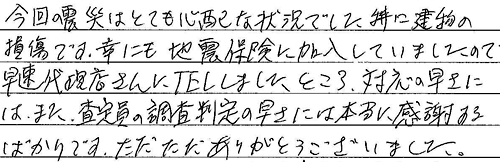 今回の震災はとても心配な状況でした。特に建物の
損傷です。幸にも地震保険に加入していましたので
早速代理店さんにTELしました。ところ、対応の早さに
は、また、査定員の調査判定の早さには本当に感謝する
ばかりです。ただただありがとうございました。